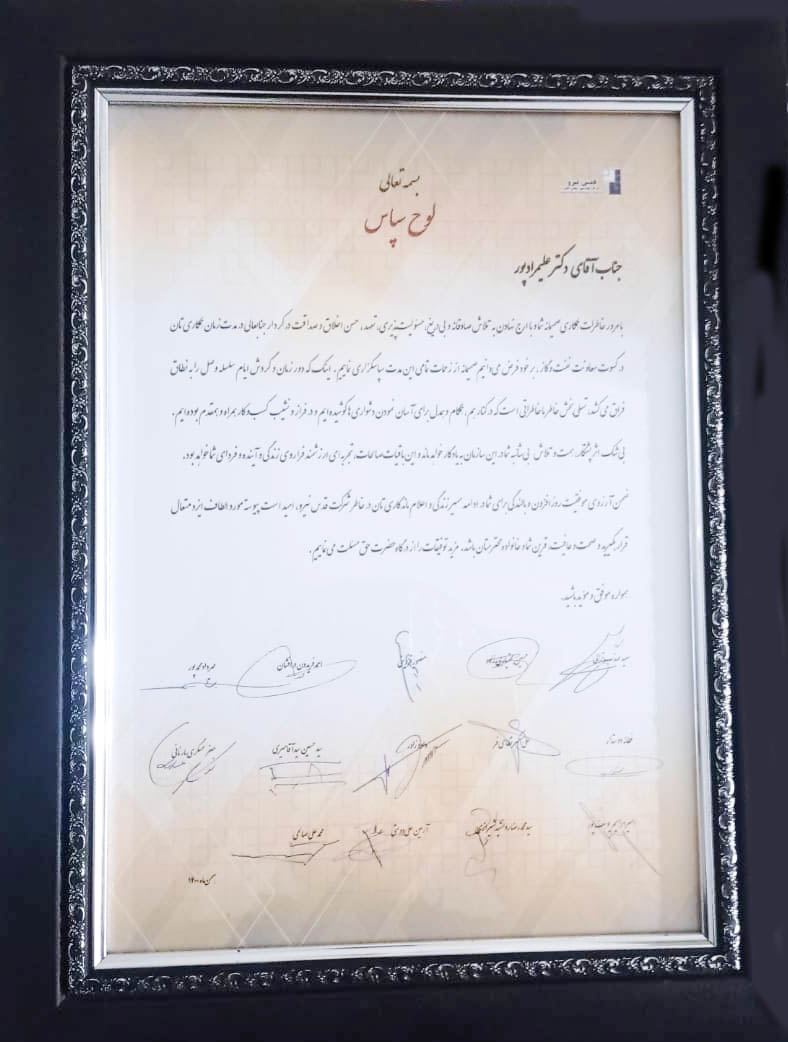 قدس نیرو
بسمه تعالی
لوح سپاس
جناب آقای دکتر علیمرادپور
با مرور خاطرات همکاری صمیمانه شما با ارج نهادن به تلاش صادقانه و بی دریغ، مسئولیت‌پذیری، تعهد، حسن اخلاق و صداقت در کردار جنابعالی در مدت زمان همکاری تان
در کسوت معاونت نفت و گاز، بر خود فرض می دانیم صمیمانه از زحمات تمامی این مدت سپاسگزاری نماییم. اینک که دور زمان و گردش ایام سلسله وصل را به نطاق
فراق می کشد، تسلی بخش خاطر ما خاطراتی است که در کنار هم، همگام و همدل برای آسان نمودن دشواری ها کوشیده ایم و در فراز و نشیب کسب و کار همراه و همقدم بوده ایم.
بی شک اثر پشتکار، همت و تلاش بی شائبه شما در این سازمان به یادگار خواهد ماند و این باقیات صالحات، تجربه ای ارزشمند فراروی زندگی و آینده و فردای شما خواهد بود.
ضمن آرزوی موفقیت روزافزون و بالندگی برای شما در ادامه مسیر زندگی و اعلام ماندگاری تان در خاطر شرکت قدس نیرو، امید است پیوسته مورد الطاف ایزد متعال
قرار بگیرید و صحت و عافیت، قرین شما و خانواده محترمتان باشد. مزید توفیقات را از درگاه حضرت حق مسئلت می نماییم.
همواره موفق و مؤید باشید.
احمد فریدون درافشان مهرداد محمدپور
علی اصغر نظامی فر داود زارور سید حسین سیدآقامیری جعفر عسگری مارنانی
محمد علی صالحی
بهمن ماه ۱۴۰۰